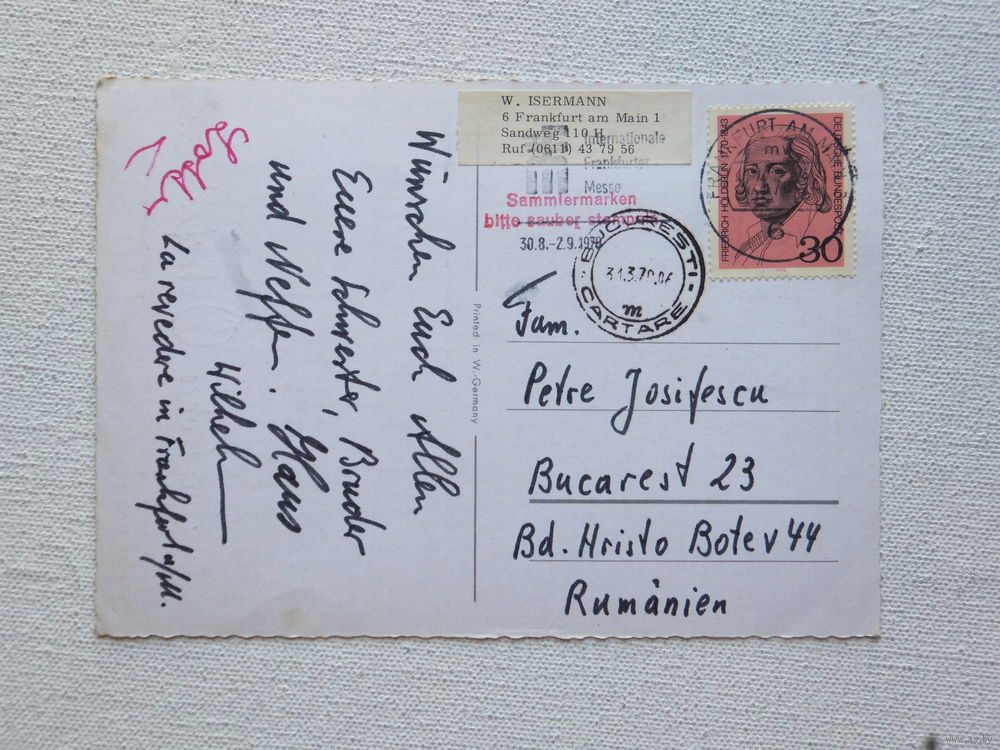 W. ISERMANN
6 Frankfurt am Main 1
Sandweg 10 H
Ruf (0611) 43 79 56
Internationale
Frankfurter
Messe
Sammlermarken
bitte sauber stempeln
30.8.-2.9.1970
FRANKFURT AM MAIN
6
DEUTSCHE BUNDESPOST
FRIEDRICH HÖLDERLIN 1770-1843
30
BUCUREŞTI
31.3.70.06
m
CARTARE
Printed in W.-Germany
Fam.
Petre Josifescu
Bucarest 23
Bd. Hristo Botev 44
Rumänien
Wünschen Euch Allen
Euere Schwester, Bruder
und Neffe. Hans
Wilhelm
La revedere in Frankfurt a/M.
www.ay.by